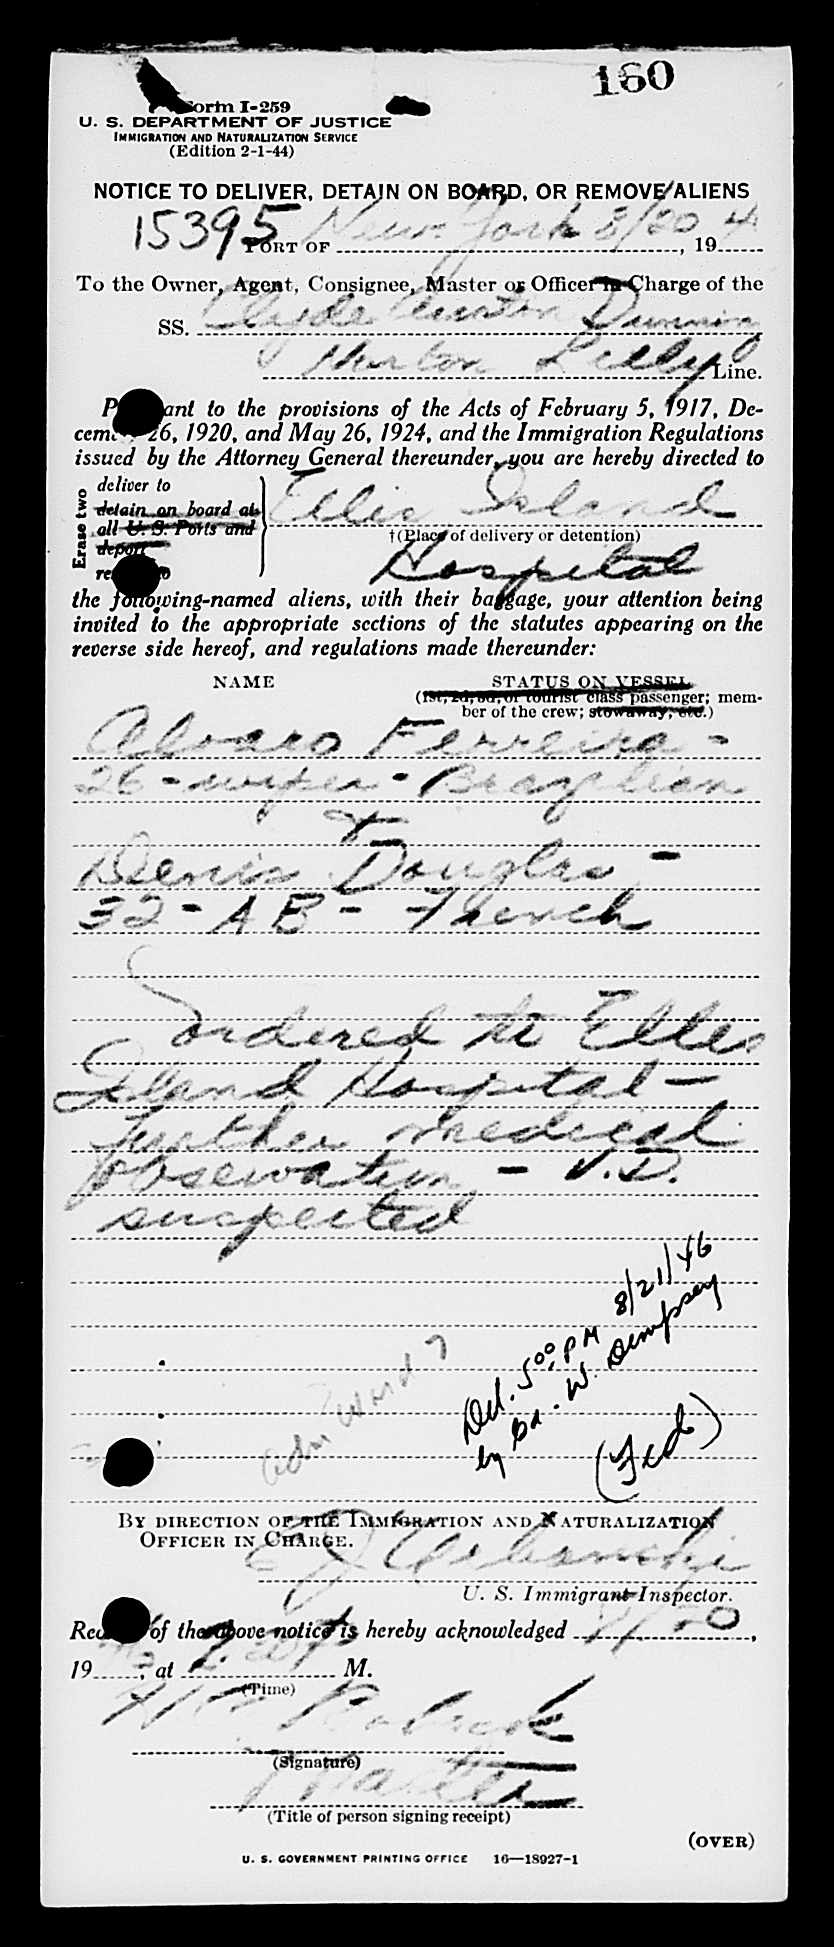 160
Form I-259
U. S. DEPARTMENT OF JUSTICE
IMMIGRATION AND NATURALIZATION SERVICE
(Edition 2-1-44)
NOTICE TO DELIVER, DETAIN ON BOARD, OR REMOVE ALIENS
15395 PORT OF New York 8/20, 194
To the Owner, Agent, Consignee, Master or Officer in Charge of the
SS. Clyde Austin Dunning
Norton Lilly Line.
P ant to the provisions of the Acts of February 5, 1917, De-
cem 26, 1920, and May 26, 1924, and the Immigration Regulations
issued by the Attorney General thereunder, you are hereby directed to
Erase two
deliver to
detain on board at
all U. S. Ports and
deport
re o
Ellis Island
†(Place of delivery or detention)
Hospital
the following-named aliens, with their baggage, your attention being
invited to the appropriate sections of the statutes appearing on the
reverse side hereof, and regulations made thereunder:
NAME STATUS ON VESSEL
(1st, 2d, 3d, or tourist class passenger; mem-
ber of the crew; stowaway, etc.)
Alvaro Ferreira -
26 - wiper - Brazilian
+
Denis Douglas -
32 - AB - French
ordered to Ellis
Island Hospital -
further medical
observation - V.D.
suspected
Del. 5:00 PM 8/21/46
by Gd. W. Dempsey
(Fed)
adm Ward 7
BY DIRECTION OF THE IMMIGRATION AND NATURALIZATION
OFFICER IN CHARGE.
U. S. Immigrant Inspector.
Rec of the above notice is hereby acknowledged
19 , at M.
(Time)
(Signature)
Master
(Title of person signing receipt)
(OVER)
U. S. GOVERNMENT PRINTING OFFICE 16—18927-1